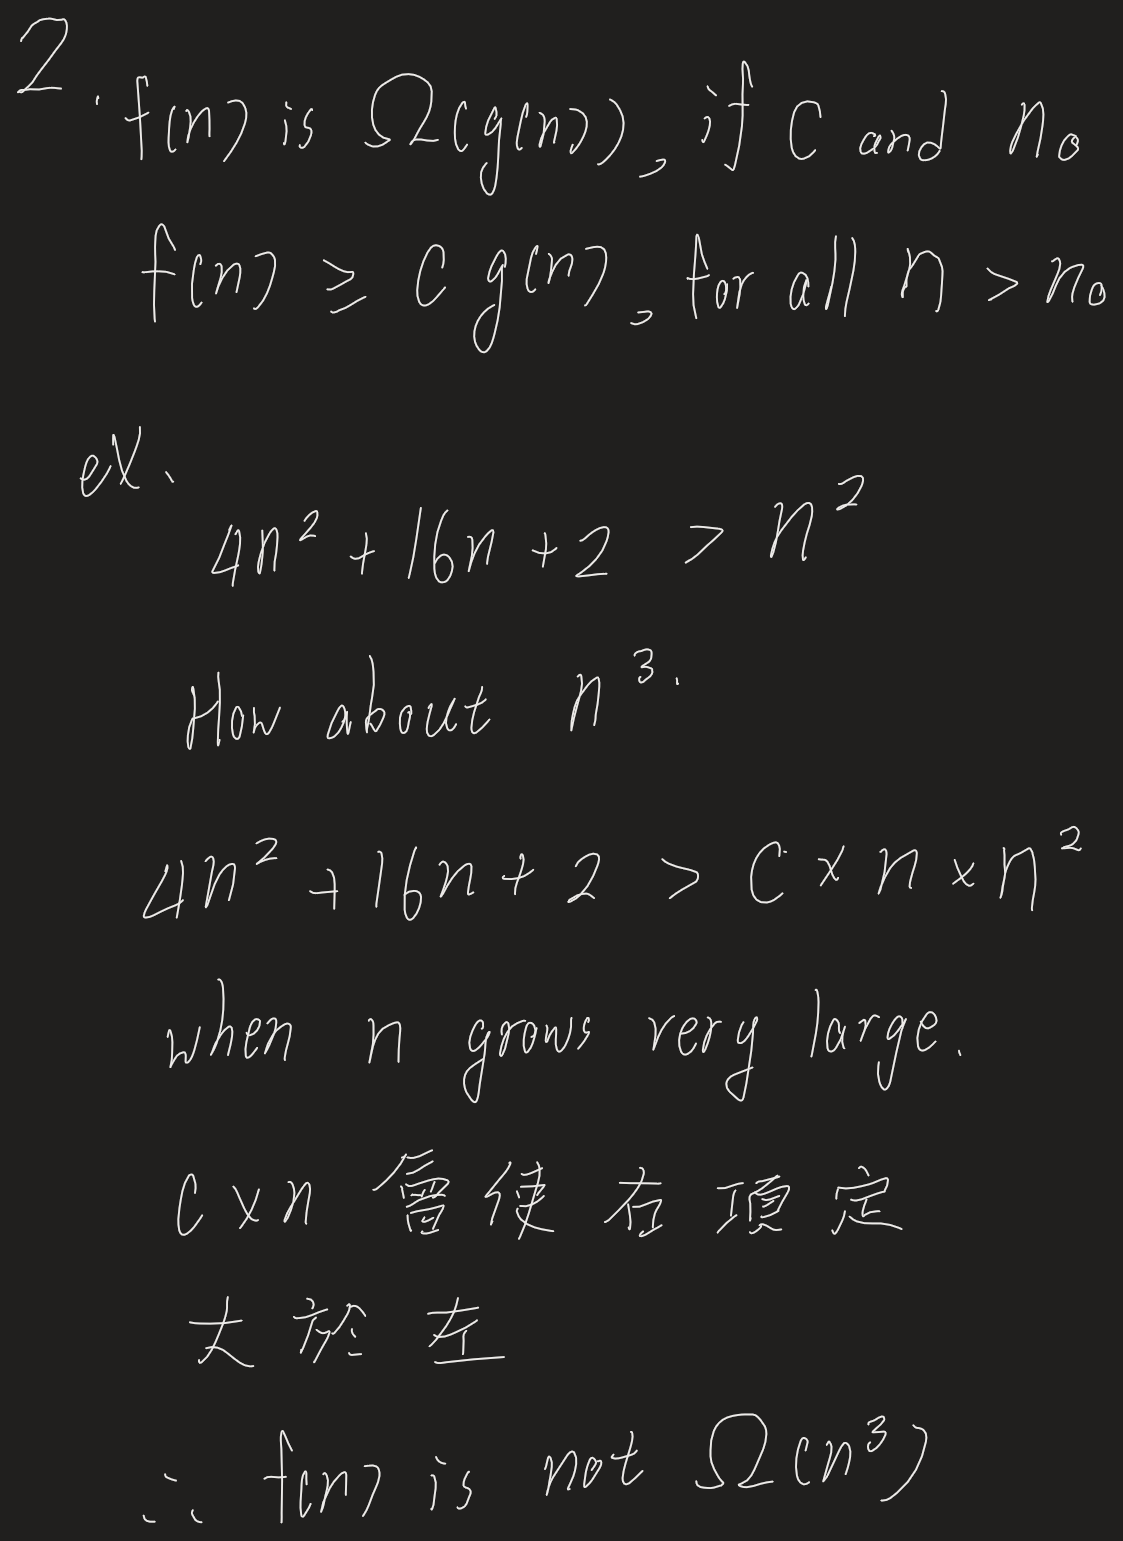 2. f(n) is Ω(g(n)), if c and n₀
f(n) ≥ c g(n), for all n > n₀
ex.
4n² + 16n + 2 > n²
How about n³.
4n² + 16n + 2 > c × n × n²
when n grows very large.
c × n 會使右項定
大於左
∴ f(n) is not Ω(n³)